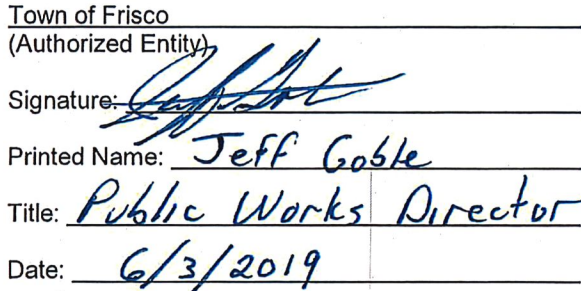 Town of Frisco
(Authorized Entity)
Signature:
Printed Name: Jeff Goble
Title: Public Works Director
Date: 6/3/2019